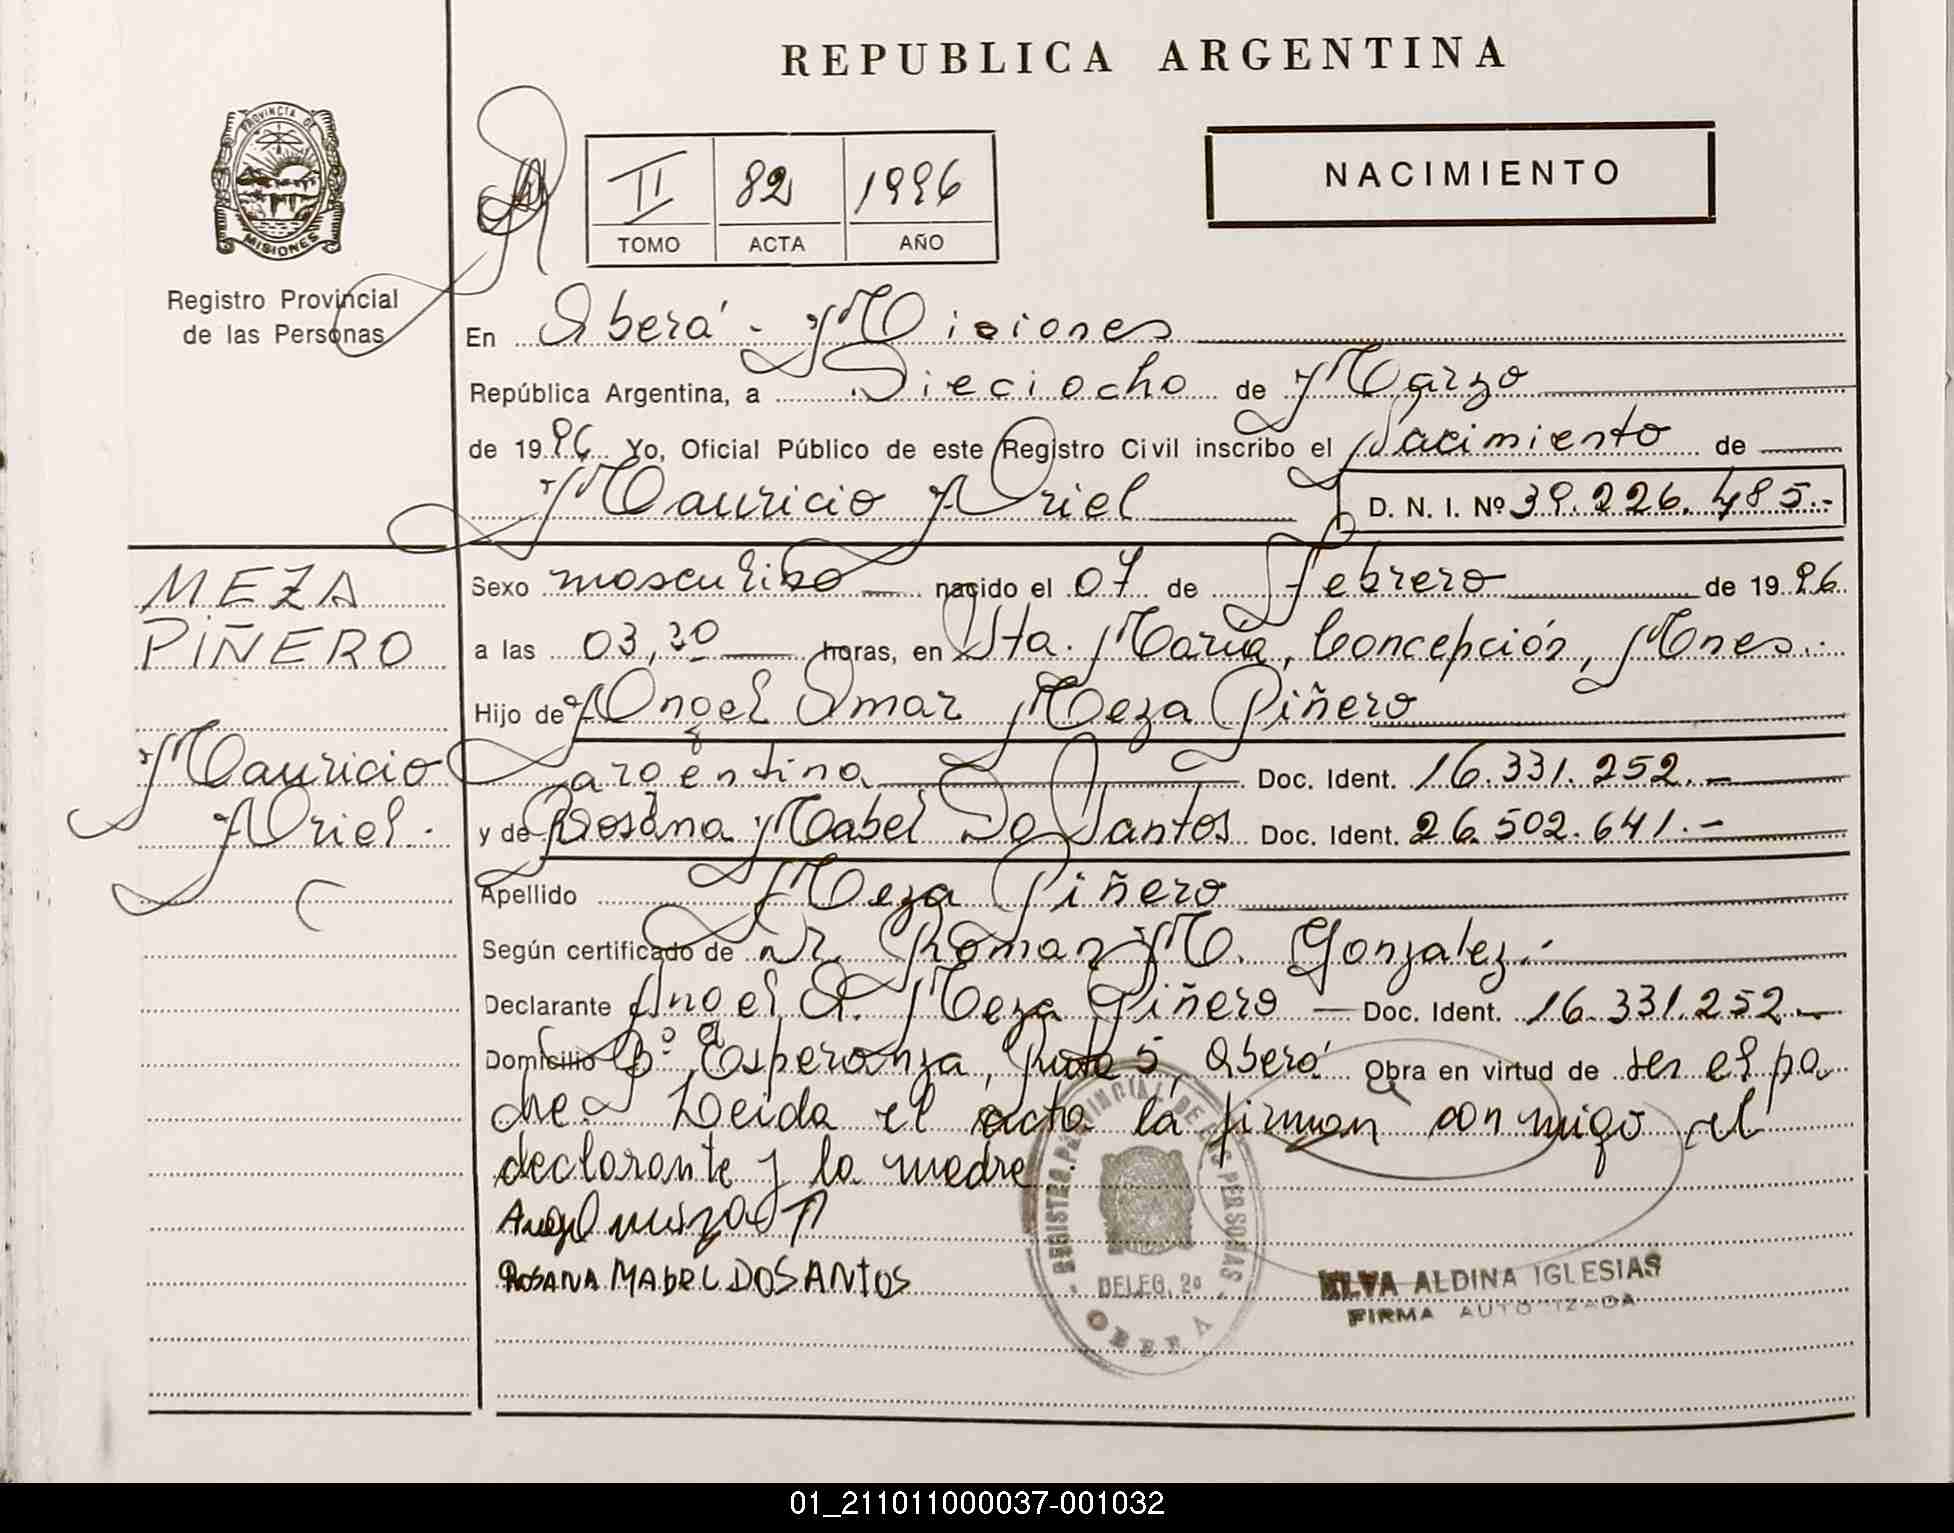 REPUBLICA ARGENTINA
PROVINCIA DE
MISIONES
Registro Provincial
de las Personas
II 82 1996
TOMO ACTA AÑO
NACIMIENTO
En Oberá - Misiones
República Argentina, a Dieciocho de Marzo
de 1996 Yo, Oficial Público de este Registro Civil inscribo el Nacimiento de
Mauricio Ariel D. N. I. Nº 39.226.485.-
MEZA
PIÑERO
Mauricio
Ariel.
Sexo masculino nacido el 07 de Febrero de 1996
a las 03,30 horas, en Sta. María, Concepción, Mnes.
Hijo de Angel Omar Meza Piñero
argentina Doc. Ident. 16.331.252.-
y de Rosana Mabel Do Santos Doc. Ident. 26.502.641.-
Apellido Meza Piñero
Según certificado de Dr. Roman M. Gonzalez.
Declarante Angel O. Meza Piñero Doc. Ident. 16.331.252-
Domicilio Bº Esperanza, Ruta 5, Oberá Obra en virtud de ser el pa
dre. Leida el acta la firman conmigo el
declarante y la madre
Angel
ROSANA MABEL DOSANTOS
REGISTRO PROVINCIAL DE LAS PERSONAS
DELEG. 2a
OBERA
ELVA ALDINA IGLESIAS
FIRMA AUTORIZADA
01_211011000037-001032